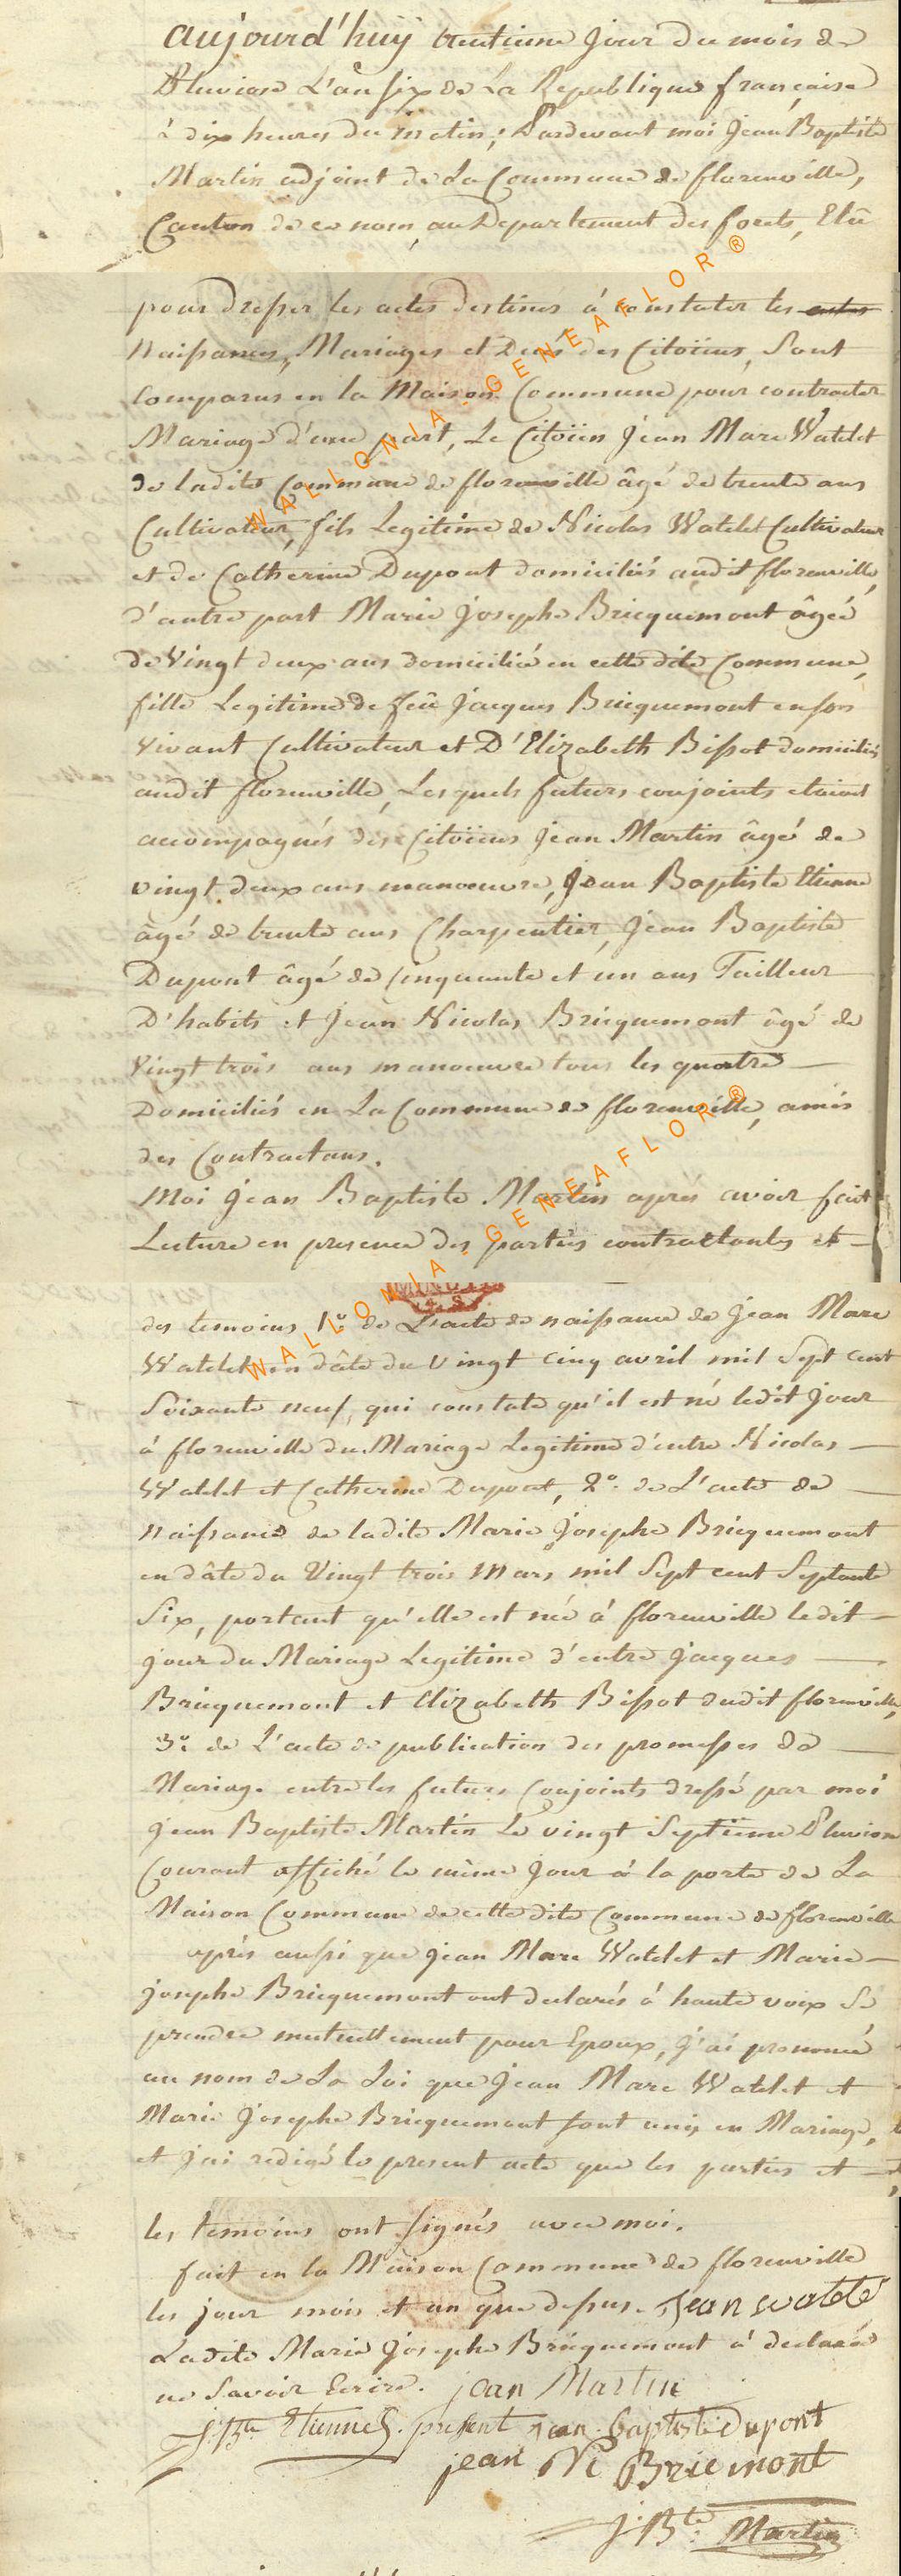 aujourd'huÿ trentieme jour du mois de
Pluviose L'an six de La Republique française
à dix heures du matin; Pardevant moi Jean Baptiste
Martin adjoint de La Commune de florenville,
Canton de ce nom, au Departement des forets, Elû
pour dresser les actes destinés à constater les
Naissances, Mariages et Decès des Citoïens, Sont
Comparus en la Maison Commune pour contracter
Mariage d'une part, Le Citoïen Jean Marc Watelet
de ladite Commune de florenville âgé de trente ans
Cultivateur, fils Legitime de Nicolas Watelet Cultivateur
et de Catherine Dupont domiciliés audit florenville,
d'autre part Marie Josephe Bricquemont âgée
de Vingt deux ans domiciliée en cette dite Commune,
fille Legitime de feû Jacques Bricquemont en son
vivant Cultivateur et D'Elizabeth Bissot domiciliés
audit florenville, Lesquels futurs conjoints etoient
accompagnés des Citoïens Jean Martin âgé de
vingt deux ans manoeuvre, Jean Baptiste Etienne
âgé de trente ans Charpentier, Jean Baptiste
Dupont âgé de Cinquante et un ans Tailleur
D'habits et Jean Nicolas Bricquemont âgé de
Vingt trois ans manoeuvre tous les quatre
Domiciliés en La Commune de florenville, amis
des Contractans.
Moi Jean Baptiste Martin après avoir fait
Lecture en presence des parties contractantes et
des temoins 1º de L'acte de naissance de Jean Marc
Watelet en dâte du Vingt cinq avril mil Sept Cent
Soixante neuf, qui constate qu'il est né ledit Jour
à florenville du Mariage Legitime d'entre Nicolas
Watelet et Catherine Dupont, 2º de L'acte de
Naissance de ladite Marie Josephe Bricquemont
en dâte du Vingt trois Mars mil Sept cent Septante
Six, portant qu'elle est née à florenville ledit
jour du Mariage Legitime d'entre Jacques
Bricquemont et Elizabeth Bissot dudit florenville,
3º de L'acte de publication des promesses de
Mariage entre les futurs Conjoints dressé par moi
Jean Baptiste Martin Le vingt Septième Pluviose
Courant affiché le même Jour à la porte de La
Maison Commune de cette dite Commune de florenville
après aussi que Jean Marc Watelet et Marie
Josephe Bricquemont ont declarés à haute voix Se
prendre mutuellement pour Epoux, J'ai prononcé
au nom de La Loi que Jean Marc Watelet et
Marie Josephe Bricquemont sont unis en Mariage,
et j'ai redigé le present acte que les parties et
les temoins ont signés avec moi.
fait en la Maison Commune de florenville
les jour mois et an que dessus. Jean watelé
Ladite Marie Josephe Bricquemont à declarée
ne Savoir Ecrire. jean Martin
J. Bte Etienne present jean baptiste Dupont
jean Ni Bricmont
J. Bte Martin
WALLONIA - GENEAFLOR ®
WALLONIA - GENEAFLOR ®